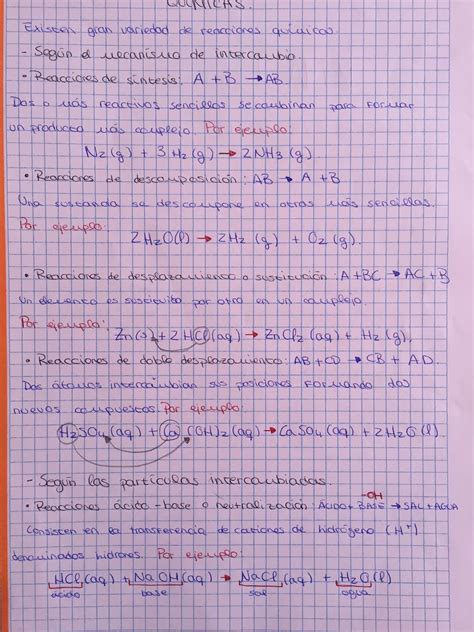 QUÍMICAS.
Existen gran variedad de reacciones químicas
- Según el mecanismo de intercambio.
• Reacciones de síntesis: A + B → AB.
Dos o más reactivos sencillos se combinan para formar
un producto más complejo. Por ejemplo:
N2(g) + 3 H2 (g) → 2NH3 (g).
• Reacciones de descomposición: AB → A + B
Una sustancia se descompone en otras más sencillas.
Por ejemplo:
2H2O(l) → 2H2 (g) + O2 (g).
• Reacciones de desplazamiento o sustitución: A + BC → AC + B
Un elemento es sustituido por otro en un complejo.
Por ejemplo:
Zn(s) + 2 HCl(aq) → ZnCl2 (aq) + H2 (g).
• Reacciones de doble desplazamiento: AB + CD → CB + AD.
Dos átomos intercambian sus posiciones formando dos
nuevos compuestos. Por ejemplo:
H2SO4 (aq) + Ca (OH)2 (aq) → CaSO4 (aq) + 2H2O (l).
- Según las partículas intercambiadas.
-OH
• Reacciones ácido-base o neutralización: ÁCIDO + BASE → SAL + AGUA
Consisten en la transferencia de cationes de hidrógeno (H+)
denominados hidrones. Por ejemplo:
HCl(aq) + NaOH(aq) → NaCl (aq) + H2O(l)
ácido base sal agua